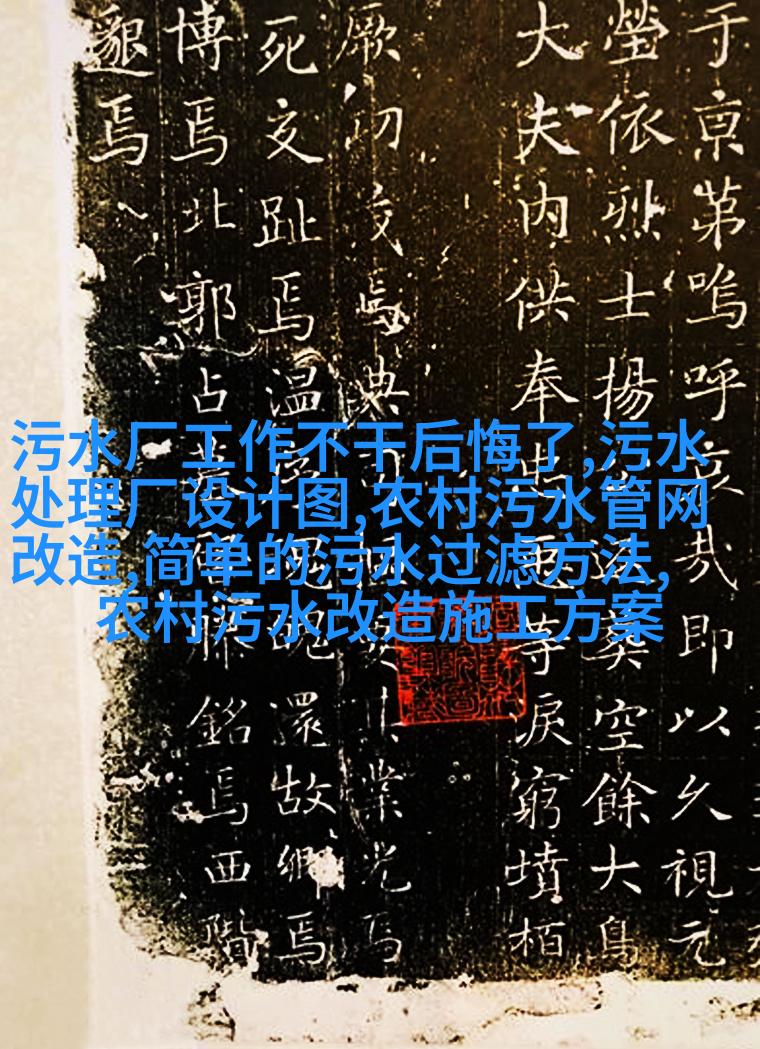 污水厂工作不干后悔了,污水
处理厂设计图,农村污水管网
改造,简单的污水过滤方法,
农村污水改造施工方案
于京第嗚呼哀哉即以久視元
塋依烈士揚葬空餘大鳥
大夫内供奉等淚窮墳栢
厥功焉典業光焉
死交趾焉温魂還故鄉焉
博焉北郭占銘焉西階
邈焉